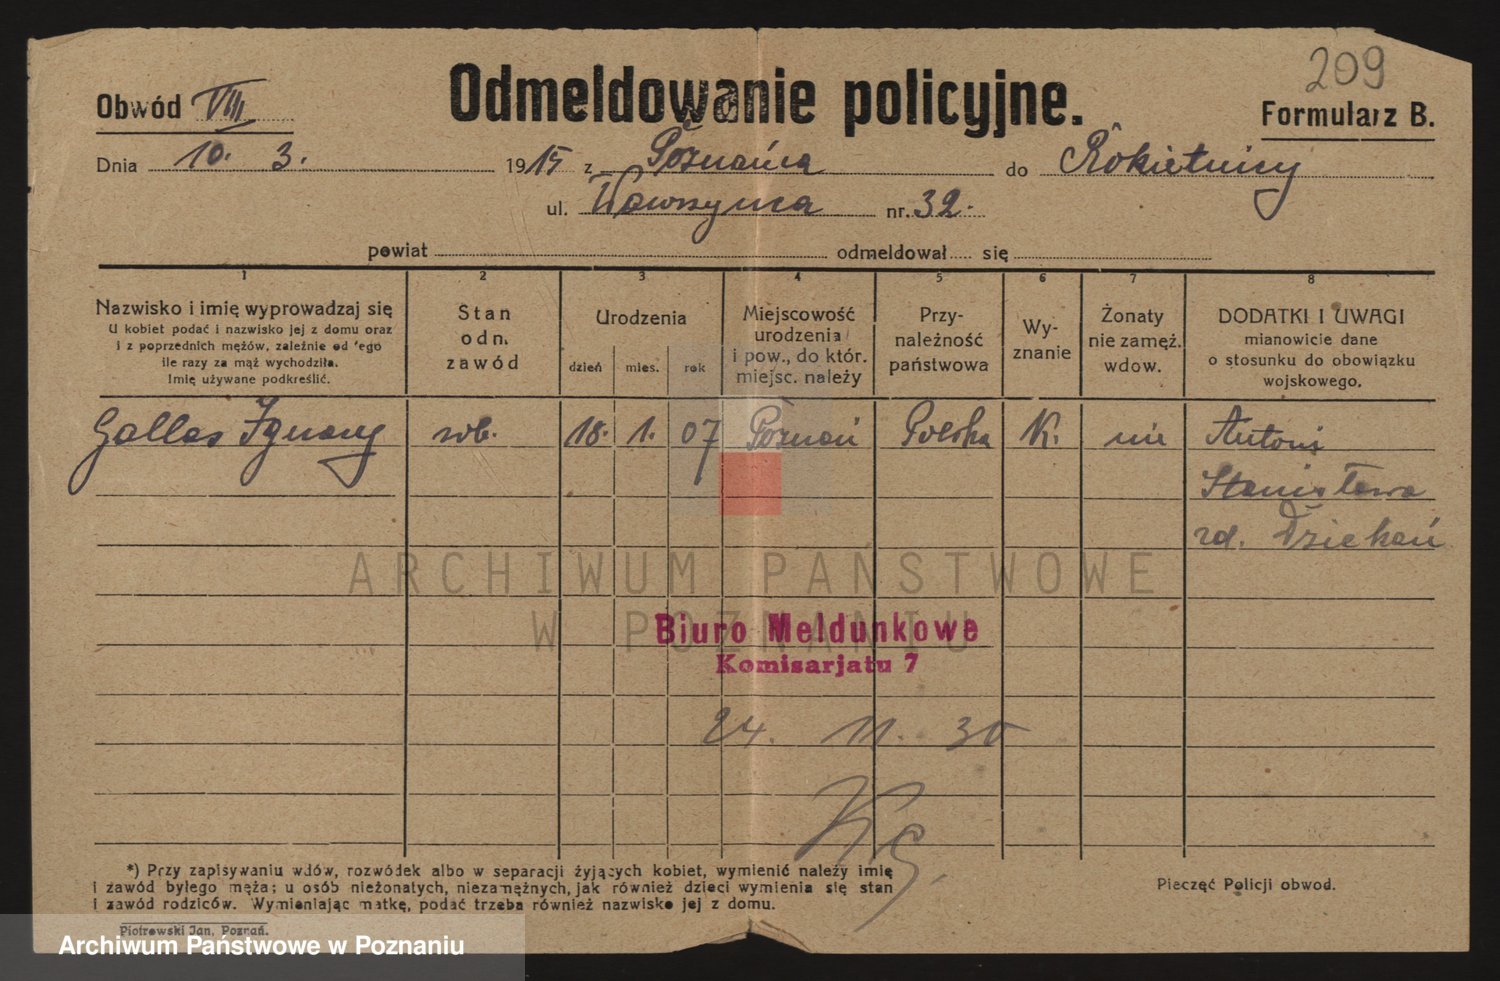 209
Odmeldowanie policyjne.
Obwód VIII
Formularz B.
Dnia 10. 3. 1915 z Poznańca do Rokietnicy
ul. Wawrzyńca nr. 32.
powiat odmeldował..... się
1 2 3 4 5 6 7 8
Nazwisko i imię wyprowadzaj się
U kobiet podać i nazwisko jej z domu oraz
i z poprzednich mężów, zależnie od tego
ile razy za mąż wychodziła.
Imię używane podkreślić.
Stan
odn.
zawód
Urodzenia
dzień mies. rok
Miejscowość
urodzenia
i pow., do któr.
miejsc. należy
Przy-
należność
państwowa
Wy-
znanie
Żonaty
nie zamęż.
wdow.
DODATKI I UWAGI
mianowicie dane
o stosunku do obowiązku
wojskowego.
Gallas Ignacy rob. 18. 1. 07 Poznań Polska K. nie Antoni
Stanisława
rd. Dziekań
ARCHIWUM PAŃSTWOWE
W POZNANIU
Biuro Meldunkowe
Komisarjatu 7
24. 11. 30
*) Przy zapisywaniu wdów, rozwódek albo w separacji żyjących kobiet, wymienić należy imię
i zawód byłego męża; u osób nieżonatych, niezamężnych, jak również dzieci wymienia się stan
i zawód rodziców. Wymieniając matkę, podać trzeba również nazwisko jej z domu.
Pieczęć Policji obwod.
Piotrowski Jan, Poznań.
Archiwum Państwowe w Poznaniu